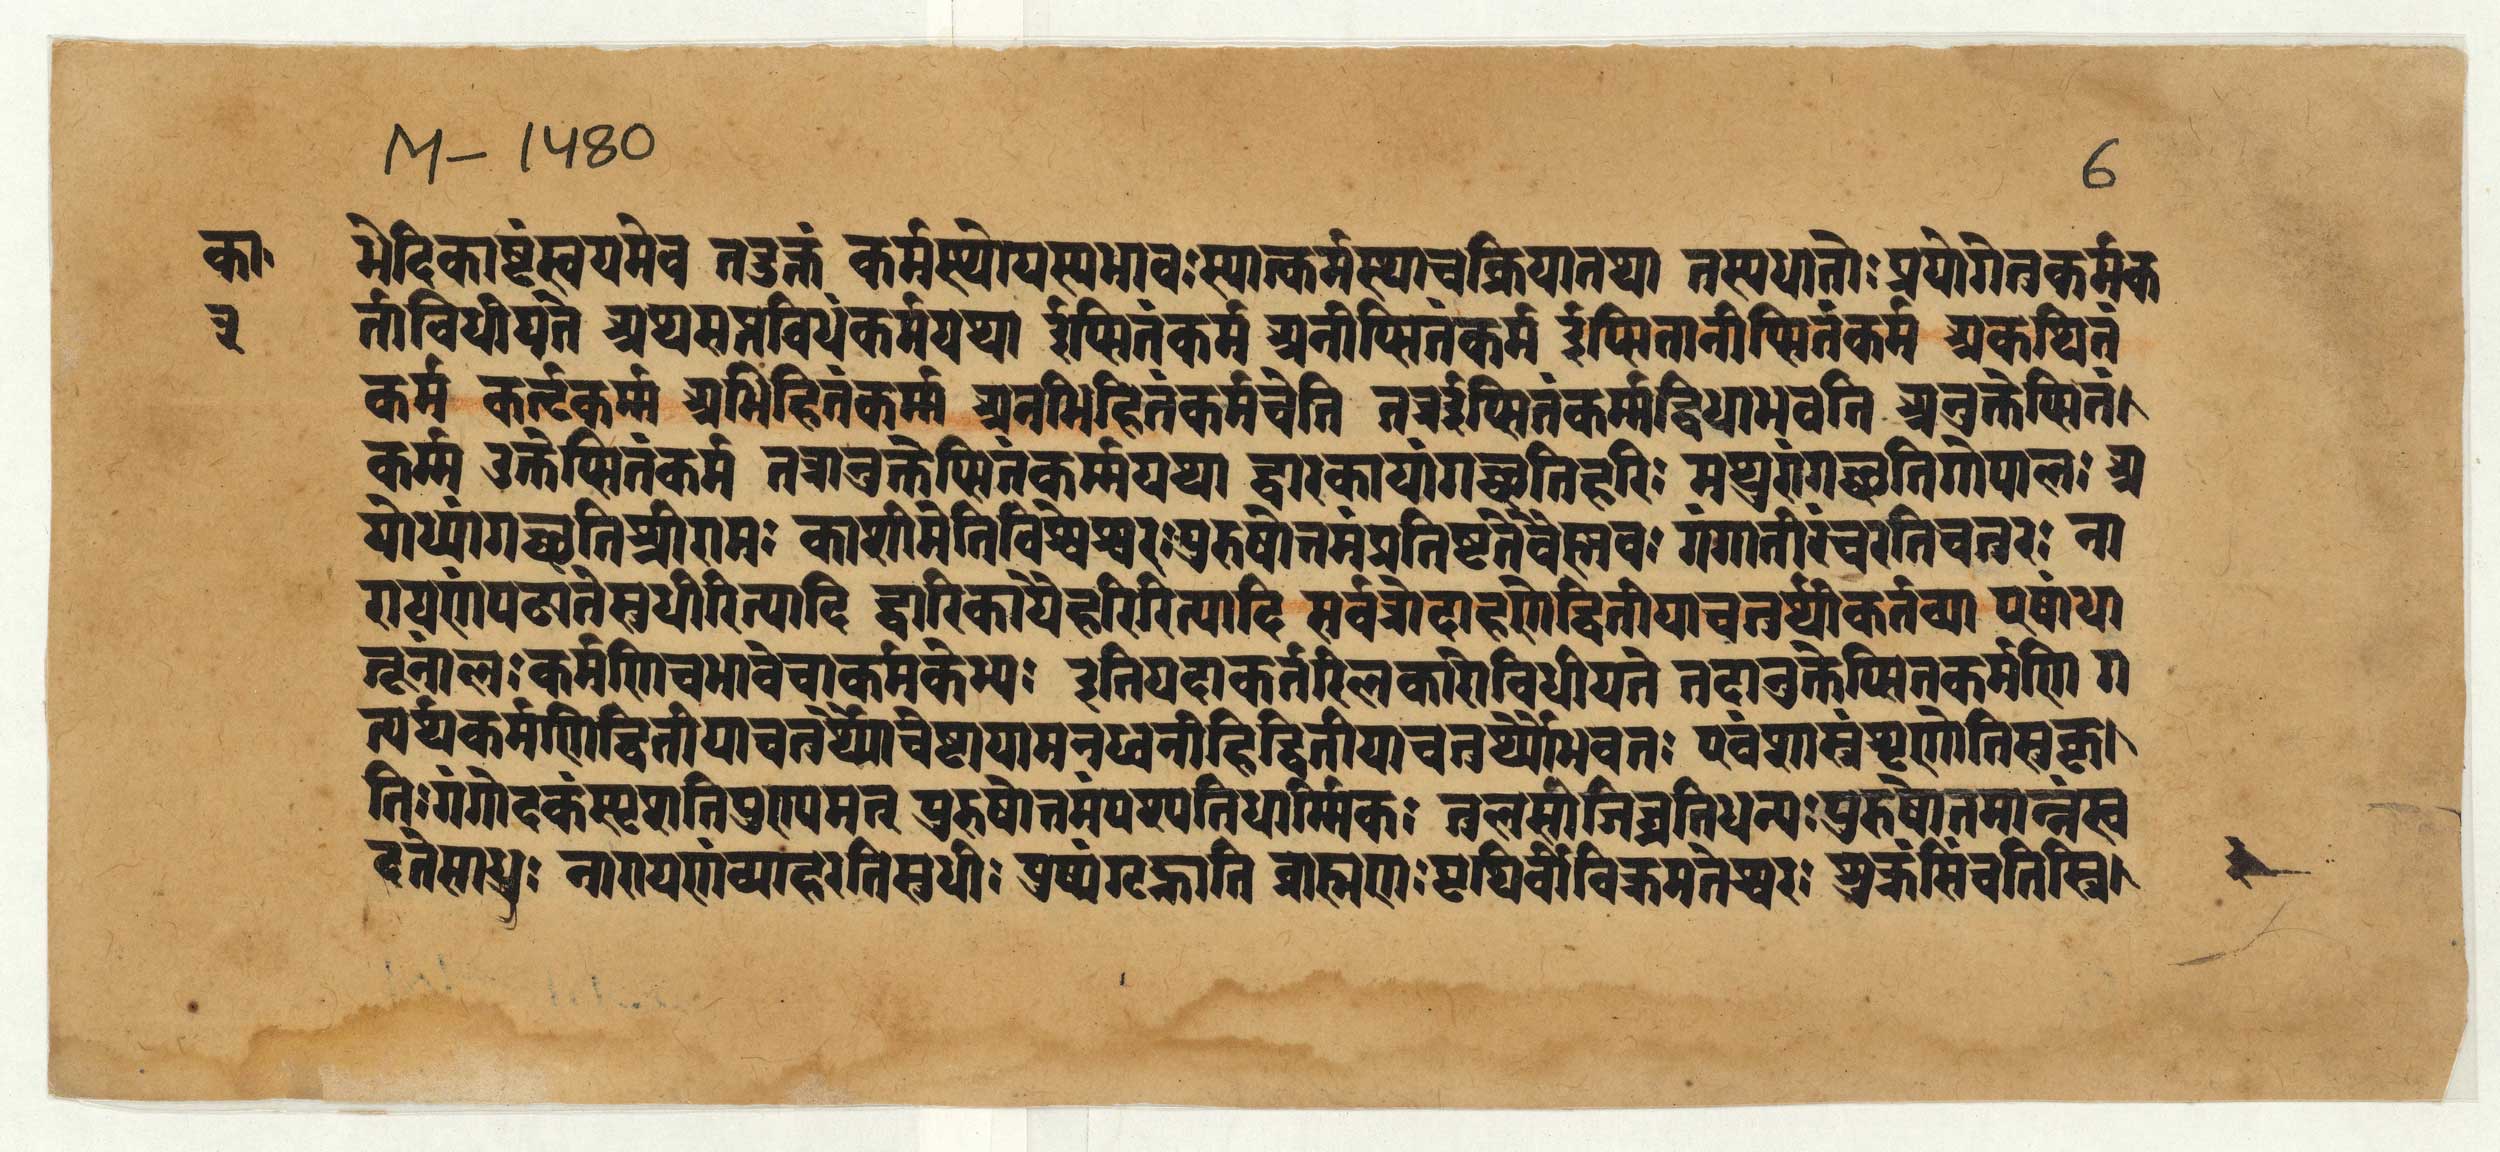 M- 1480
6
का॰
३
भेदिकाष्टंस्वयमेव तदुक्तं कर्मस्थोयस्यभावःस्यात्कर्मस्थाचक्रियातथा तस्यधातोःप्रयोगेतुकर्मक
र्ताविधीयते अथसप्तविधंकर्मयथा ईप्सितंकर्म अनीप्सितंकर्म ईप्सितानीप्सितंकर्म अकथितं
कर्म कर्तृकर्म्म अभिहितंकर्म्म अनभिहितंकर्मचेति तत्रईप्सितंकर्म्मद्विधाभवति अनुक्तेप्सितं।
कर्म्म उक्तेप्सितंकर्म तत्रानुक्तेप्सितंकर्म्मयथा द्वारकायांगच्छतिहरिः मथुरांगच्छतिगोपालः अ
योध्यांगच्छतिश्रीरामः काशीमेतिविश्वेश्वरःपुरुषोत्तमंप्रतिष्टतेवैस्नवः गंगातीरंचरतिचतुरः ना
रायणंपठातेसुधीरित्यादि द्वारिकायैहरिरित्यादि सर्वत्रोदाहरणेद्वितीयाचतुर्थीकर्तव्या एषांधा
तूनांलःकर्मणिचभावेचाकर्मकेभ्यः इतियदाकर्तरिलकारोविधीयते तदानुक्तेप्सितकर्मणि ग
त्यर्थकर्मणिद्वितीयाचतुर्थ्यौचेष्टायामनध्वनीहिद्वितीयाचतुर्थ्यौभवतः एवंशास्त्रंशृणोतिसुकृ।
तिःगंगोदकंस्पृशतिपुण्यमतु पुरुषोत्तमंपश्यतिधार्म्मिकः तुलसींजिघ्रतिधन्यःपुरुषोतमान्नंस्व
दतेसाधुः नारायणंव्याहरतिसुधीः पुष्पंगृह्णाति ब्राह्मणःपृथिवींविक्रमतेश्वरः शुक्रंसिंचतिस्त्रि।